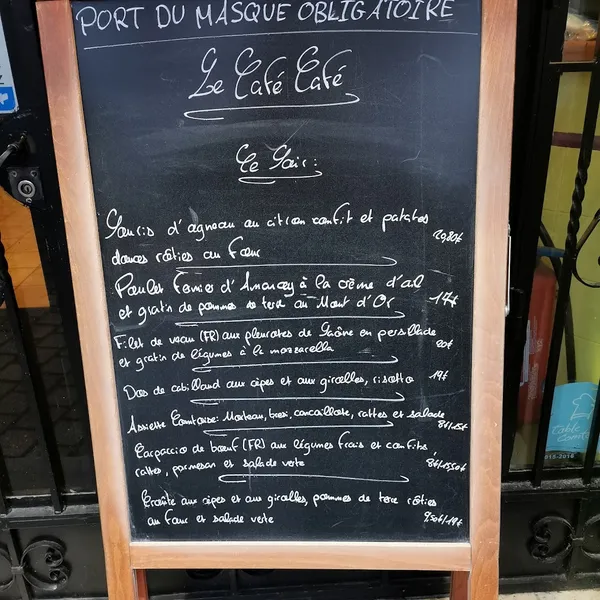 PORT DU MASQUE OBLIGATOIRE
Le Café Café
Ce Soir :
Souris d'agneau au citron confit et patates
douces rôties au four
Poulet fermier d'Amancey à la crème d'ail
et gratin de pommes de terre au Mont d'Or 17€
Filet de veau (FR) aux pleurotes de Saône en persillade
et gratin de légumes à la mozzarella 20€
Dos de cabillaud aux cèpes et aux girolles, risotto 19€
Assiette Comtoise: Morteau, bresi, cancoillotte, rattes et salade
Carpaccio de bœuf (FR) aux légumes frais et confits,
rattes, parmesan et salade verte
Croûte aux cèpes et aux girolles, pommes de terre rôties
au four et salade verte 9,50€/19€